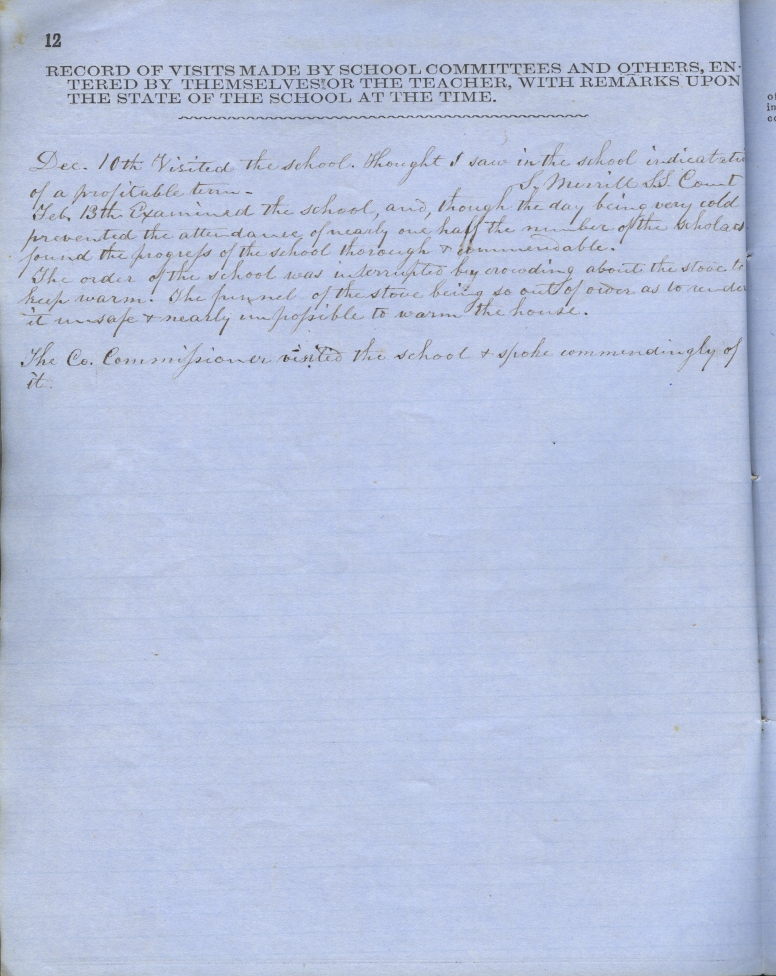 12
RECORD OF VISITS MADE BY SCHOOL COMMITTEES AND OTHERS, EN-
TERED BY THEMSELVES OR THE TEACHER, WITH REMARKS UPON
THE STATE OF THE SCHOOL AT THE TIME.
Dec. 10th Visited the school. Thought I saw in the school
of a profitable term - S. Merrill S.S.
Feb. 13th Examined the school, and, though the day being very cold
prevented the attendance of nearly one half the number of the scholars
found the progress of the school thorough & commendable.
The order of the school was interrupted by crowding about the stove to
keep warm. The funnel of the stove being so out of order as to render
it unsafe & nearly impossible to warm the house.
The Co. Commissioner visited the school & spoke commendingly of
it.